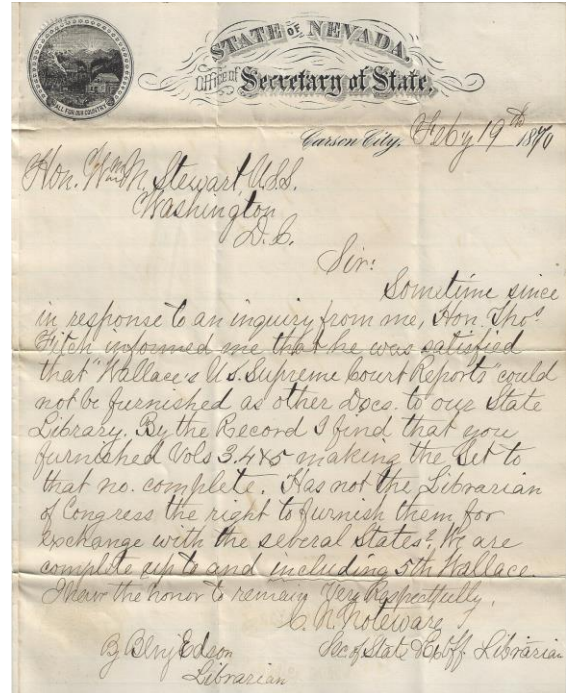 STATE OF NEVADA.
Office of Secretary of State.
ALL FOR OUR COUNTRY
Carson City, Feby 19th 1870
Hon. Wm M. Stewart, U.S.S.
Washington
D.C.
Sir:
Sometime since
in response to an inquiry from me, Hon. Thos.
Fitch informed me that he was satisfied
that "Wallace's U.S. Supreme Court Reports" could
not be furnished as other Docs. to our State
Library. By the Record I find that you
furnished Vols 3.4&5 making the Set to
that no. complete. Has not the Librarian
of Congress the right to furnish them for
exchange with the several States? We are
complete up to and including 5th Wallace.
I have the honor to remain Very Respectfully,
C. N. Noteware
By Benj Edson Sec of State & Ex Off. Librarian
Librarian